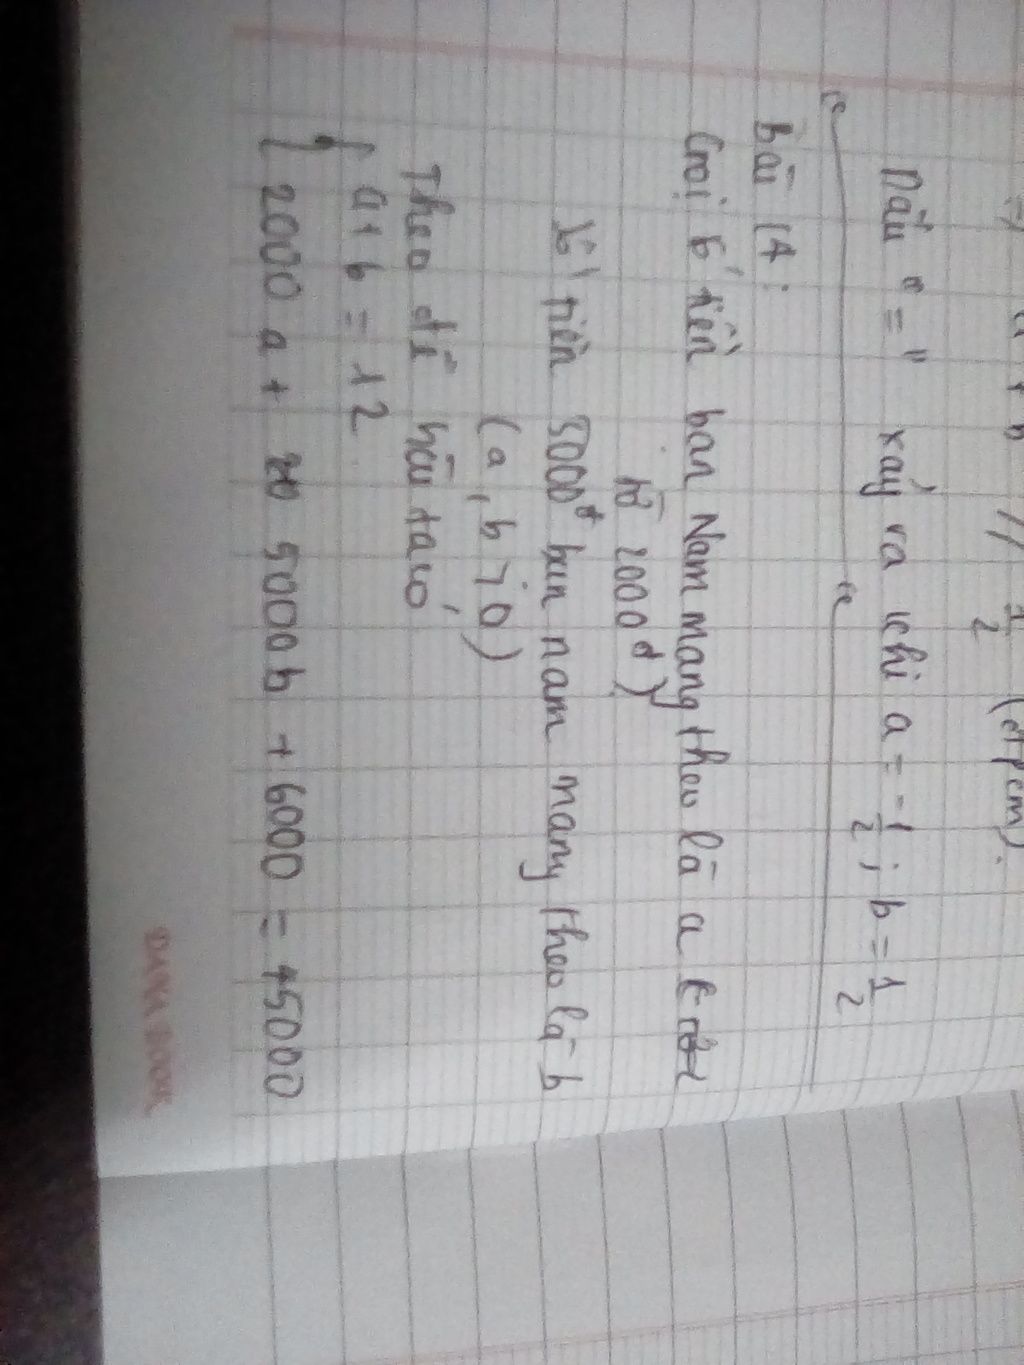 ⇒ a + b // 1/2 (đpcm).
Dấu " = " xảy ra khi a = -1/2 ; b = 1/2
bài 14 :
Gọi số tiền bạn Nam mang theo là a
tờ 2000đ)
số tiền 5000đ bạn nam mang theo là b
(a, b > 0)
Theo đề bài ta có
{ a + b = 12
{ 2000 a + 5000 b + 6000 = 45000
DANA BOOK